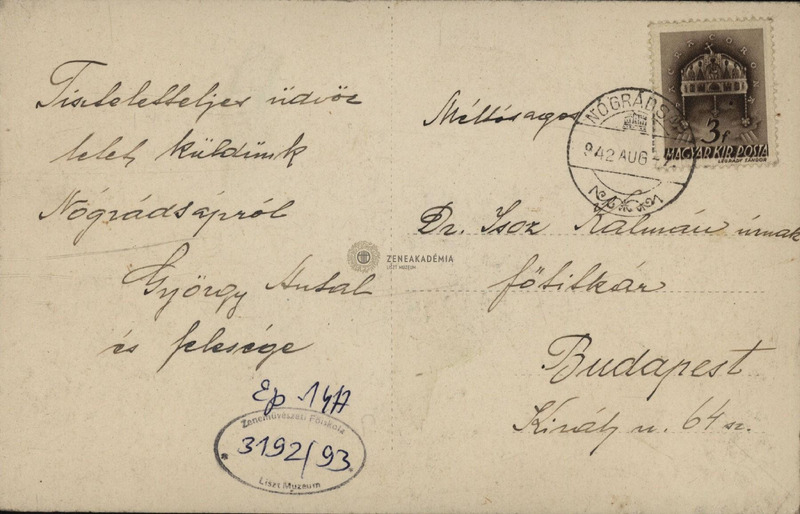 Tiszteletteljes üdvöz
letet küldünk
Nógrádsápról
György Antal
és felesége
Ep 14/A
Zeneművészeti Főiskola
3192/93
Liszt Muzeum
ZENEAKADÉMIA
LISZT MÚZEUM
3f
MAGYAR KIR. POSTA
LÉGRÁDY SÁNDOR
NÓGRÁDSÁP
942 AUG
Méltóságos
Dr. Isoz Kálmán úrnak
főtitkár
Budapest
Király u. 64 sz.